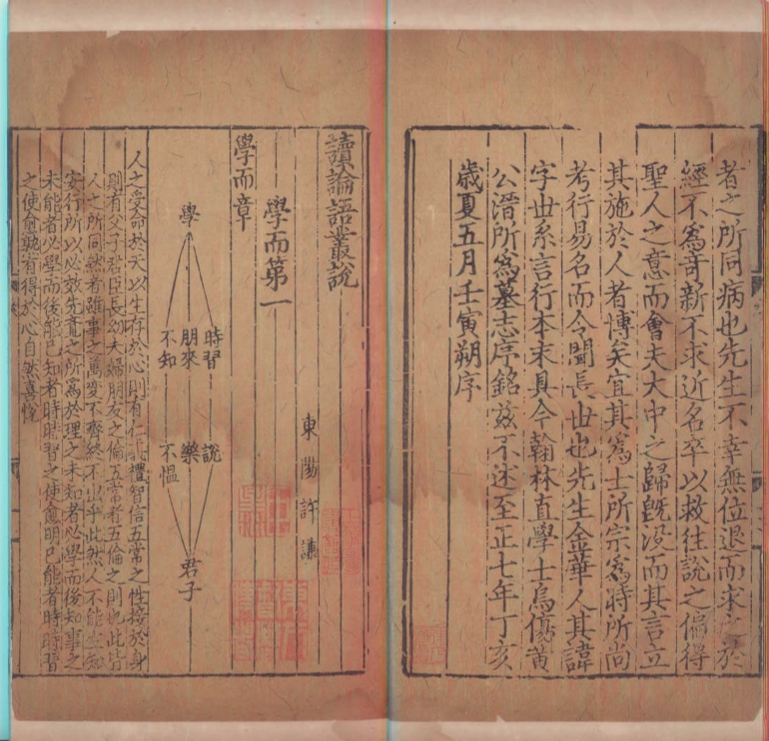 者之所同病也先生不幸無位退而求之於
經不為奇新不求近名卒以救往說之偏得
聖人之意而會夫大中之歸旣沒而其言立
其施於人者博矣宜其為士所宗為時所尚
考行易名而令聞長世也先生金華人其諱
字世系言行本末具今翰林直學士烏傷黃
公溍所為墓志序銘茲不述至正七年丁亥
歲夏五月壬寅朔序
讀論語叢說
東陽許謙
學而第一
學而章
時習 說
學 朋來 樂 君子
不知 不慍
人之受命於天以生存於心則有仁義禮智信五常之性接於身
則有父子君臣長幼夫婦朋友之倫五常者五倫之則也此皆
人之所同然者雖事之萬變不齊終不出乎此然人不能生知
安行所以必效先覺之所為於理之未知者必學而後知事之
未能者必學而後能已知者時時習之使愈明已能者時時習
之使愈熟有得於心自然喜悅